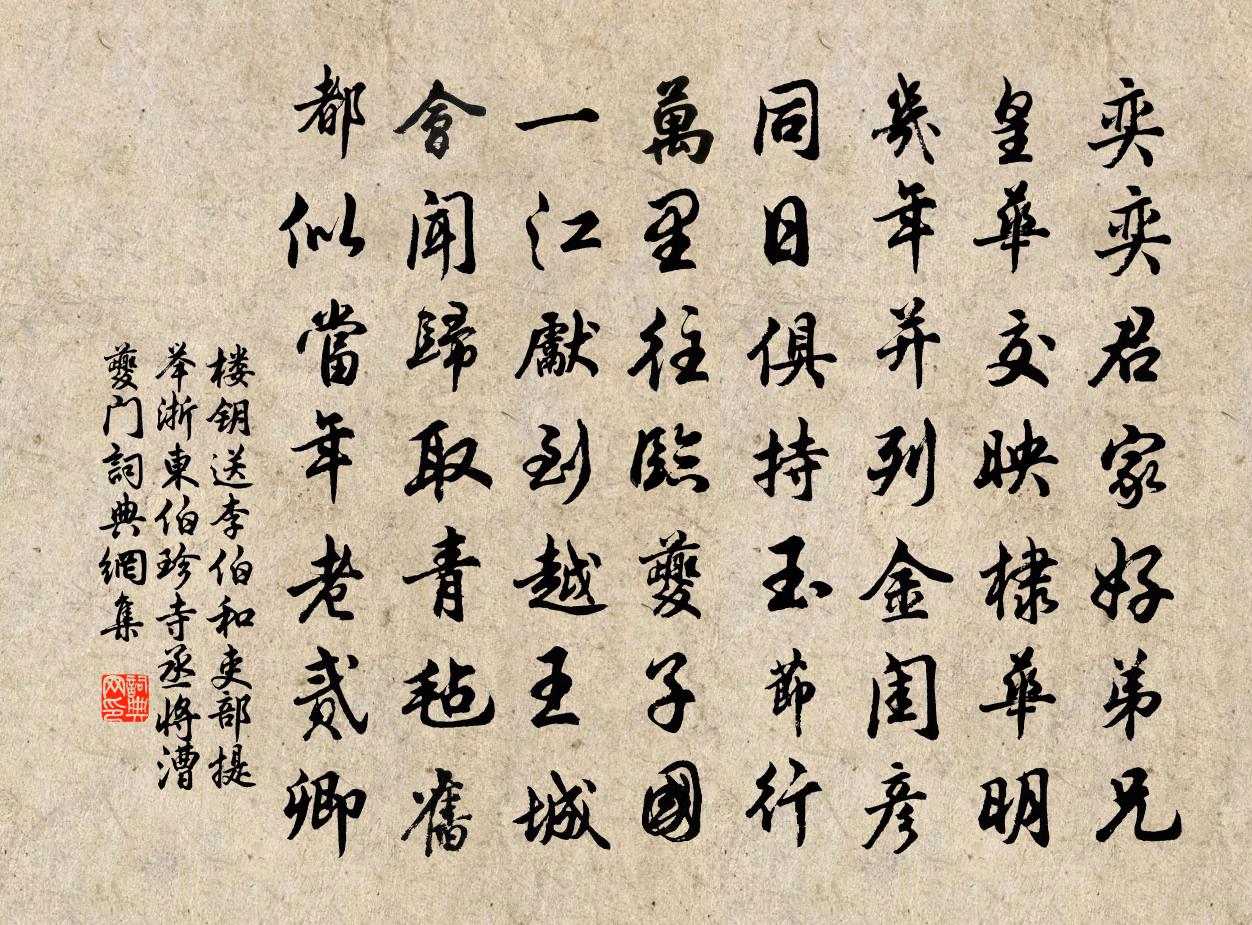 奕奕君家好弟兄
皇華交映棣華明
幾年并列金閨彦
同日俱持玉節行
萬里往臨夔子國
一江獻到越王城
會聞歸取青毡舊
都似當年老貳卿
楼钥送李伯和吏部提
举浙東伯珍寺丞将漕
夔门詞典網集
詞典
网印